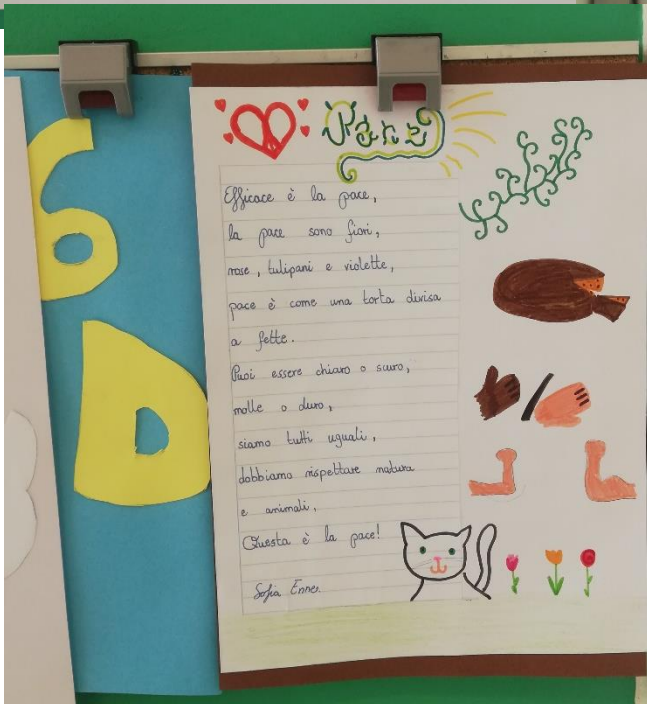 6
D
Pace
Efficace è la pace,
la pace sono fiori,
rose, tulipani e violette,
pace è come una torta divisa
a fette.
Puoi essere chiaro o scuro,
molle o duro,
siamo tutti uguali,
dobbiamo rispettare natura
e animali,
Questa è la pace!
Sofia